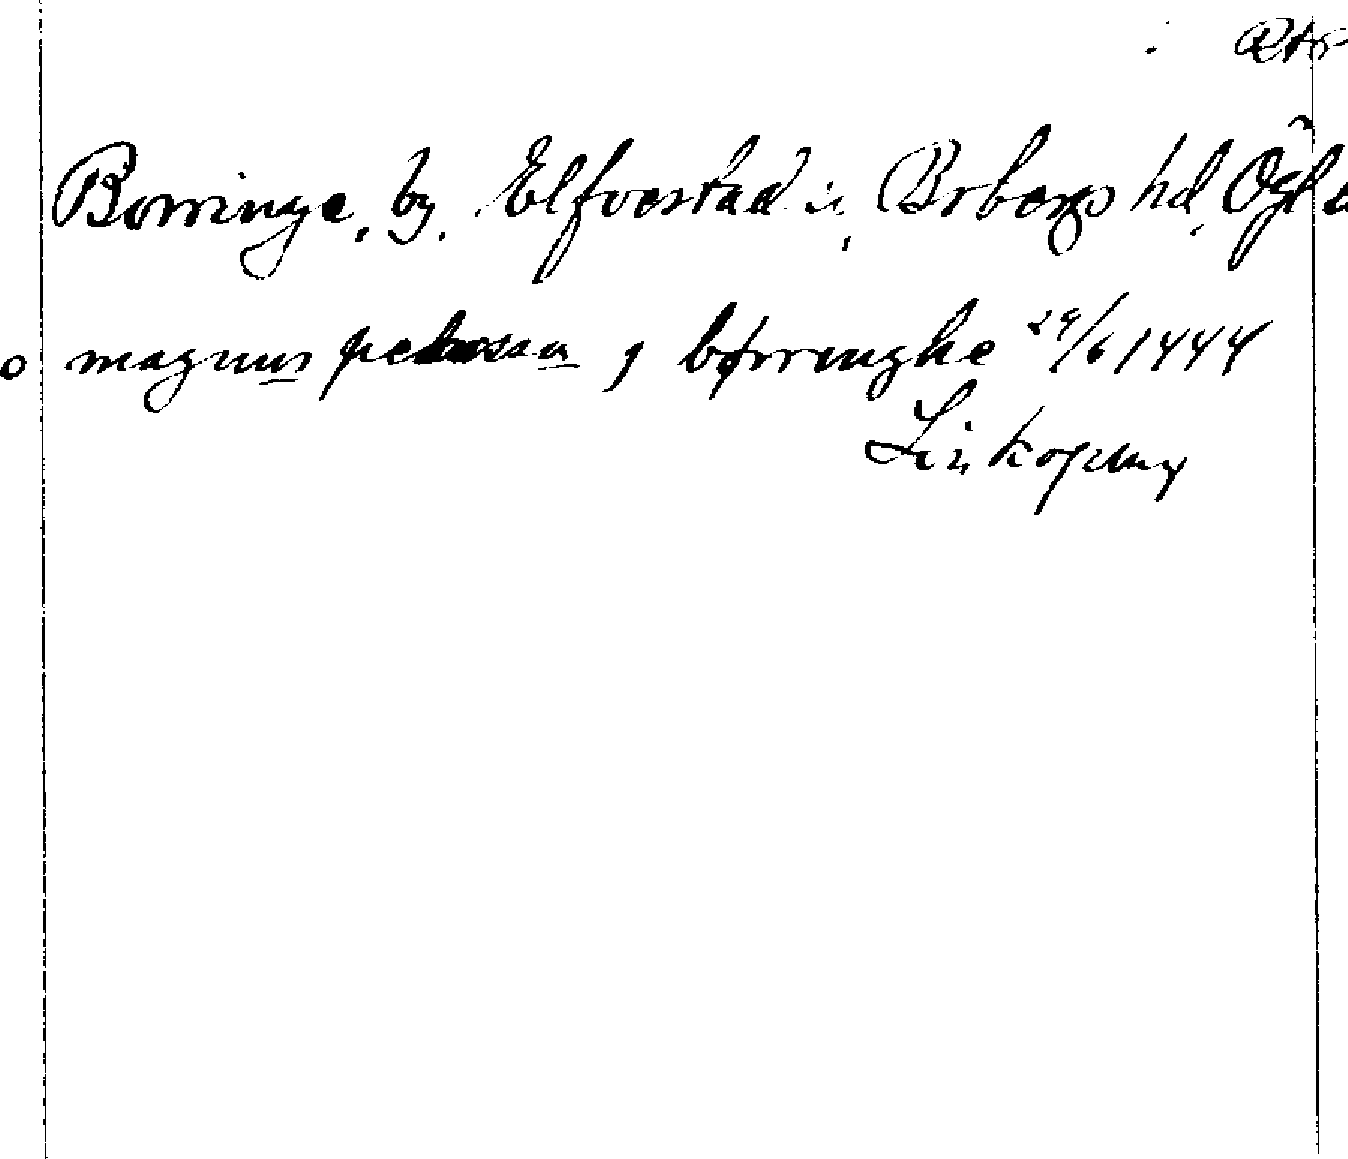 Borringe, by, Elfvestad sn, Bobergs hd, Ögl
o magnus petersson j børringhe 29/6 1444
Linköping